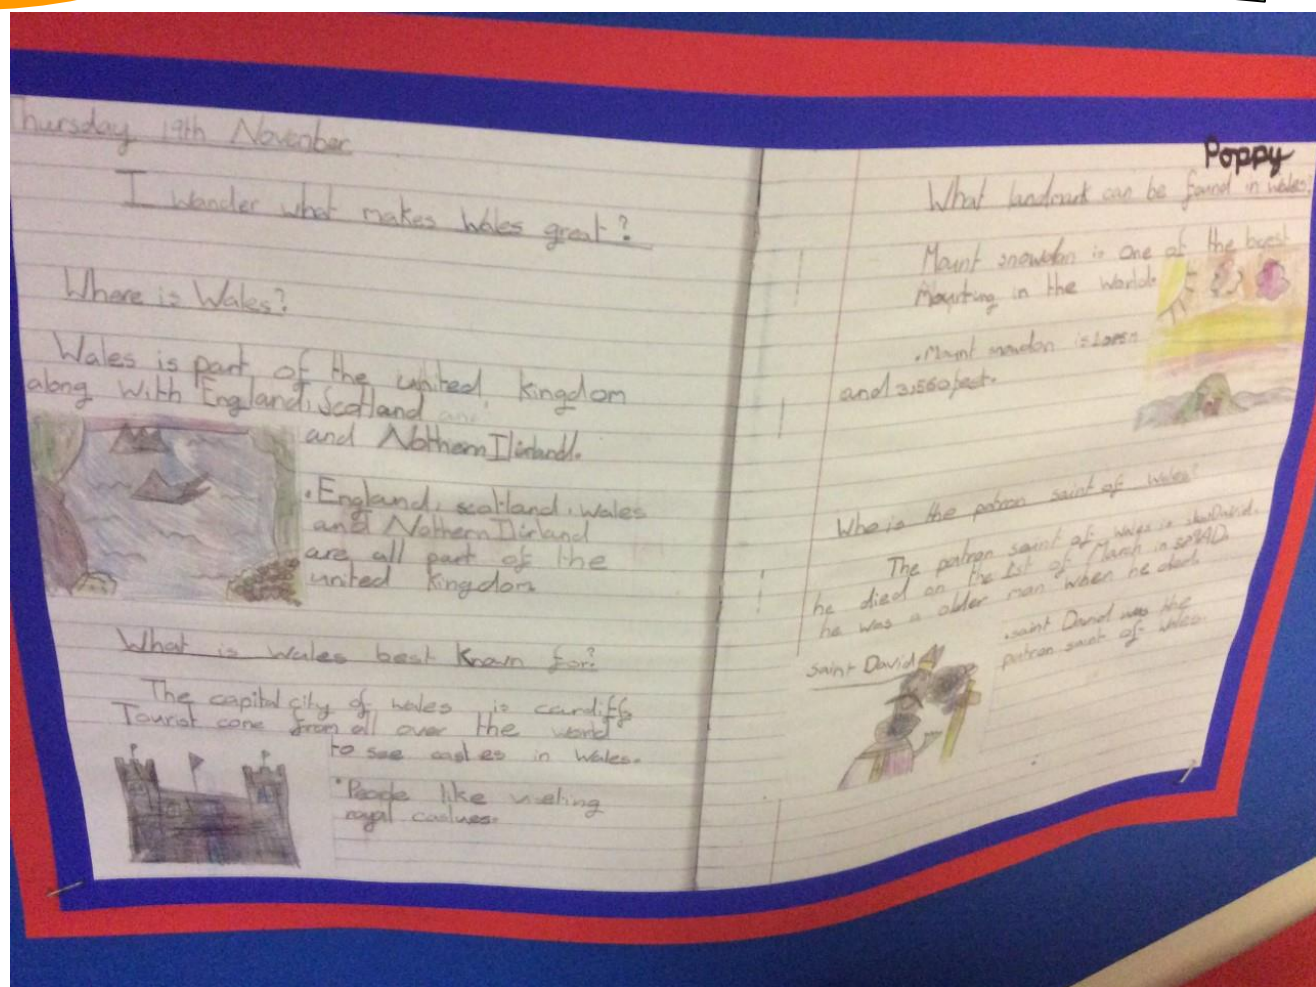 Thursday 19th November
I wander what makes Wales great?
Where is Wales?
Wales is part of the united kingdom
along with England, Scotland and
and Nothern Iirland.
• England, scotland, wales
and Nothern Iirland
are all part of the
united kingdom
What is wales best known for?
The capital city of wales is cardiff
Tourist come from all over the world
to see castles in wales.
• People like
royal
Poppy
What landmark can be found in wales.
Mount snowdon is one of the
in the world.
• Mount snowdon is
and 3,560 feet.
Who is the patron saint of wales?
The patron saint of wales is David.
he died on the 1st of March in
he was a older man when he died.
• saint David was the
patron saint of wales.
saint David